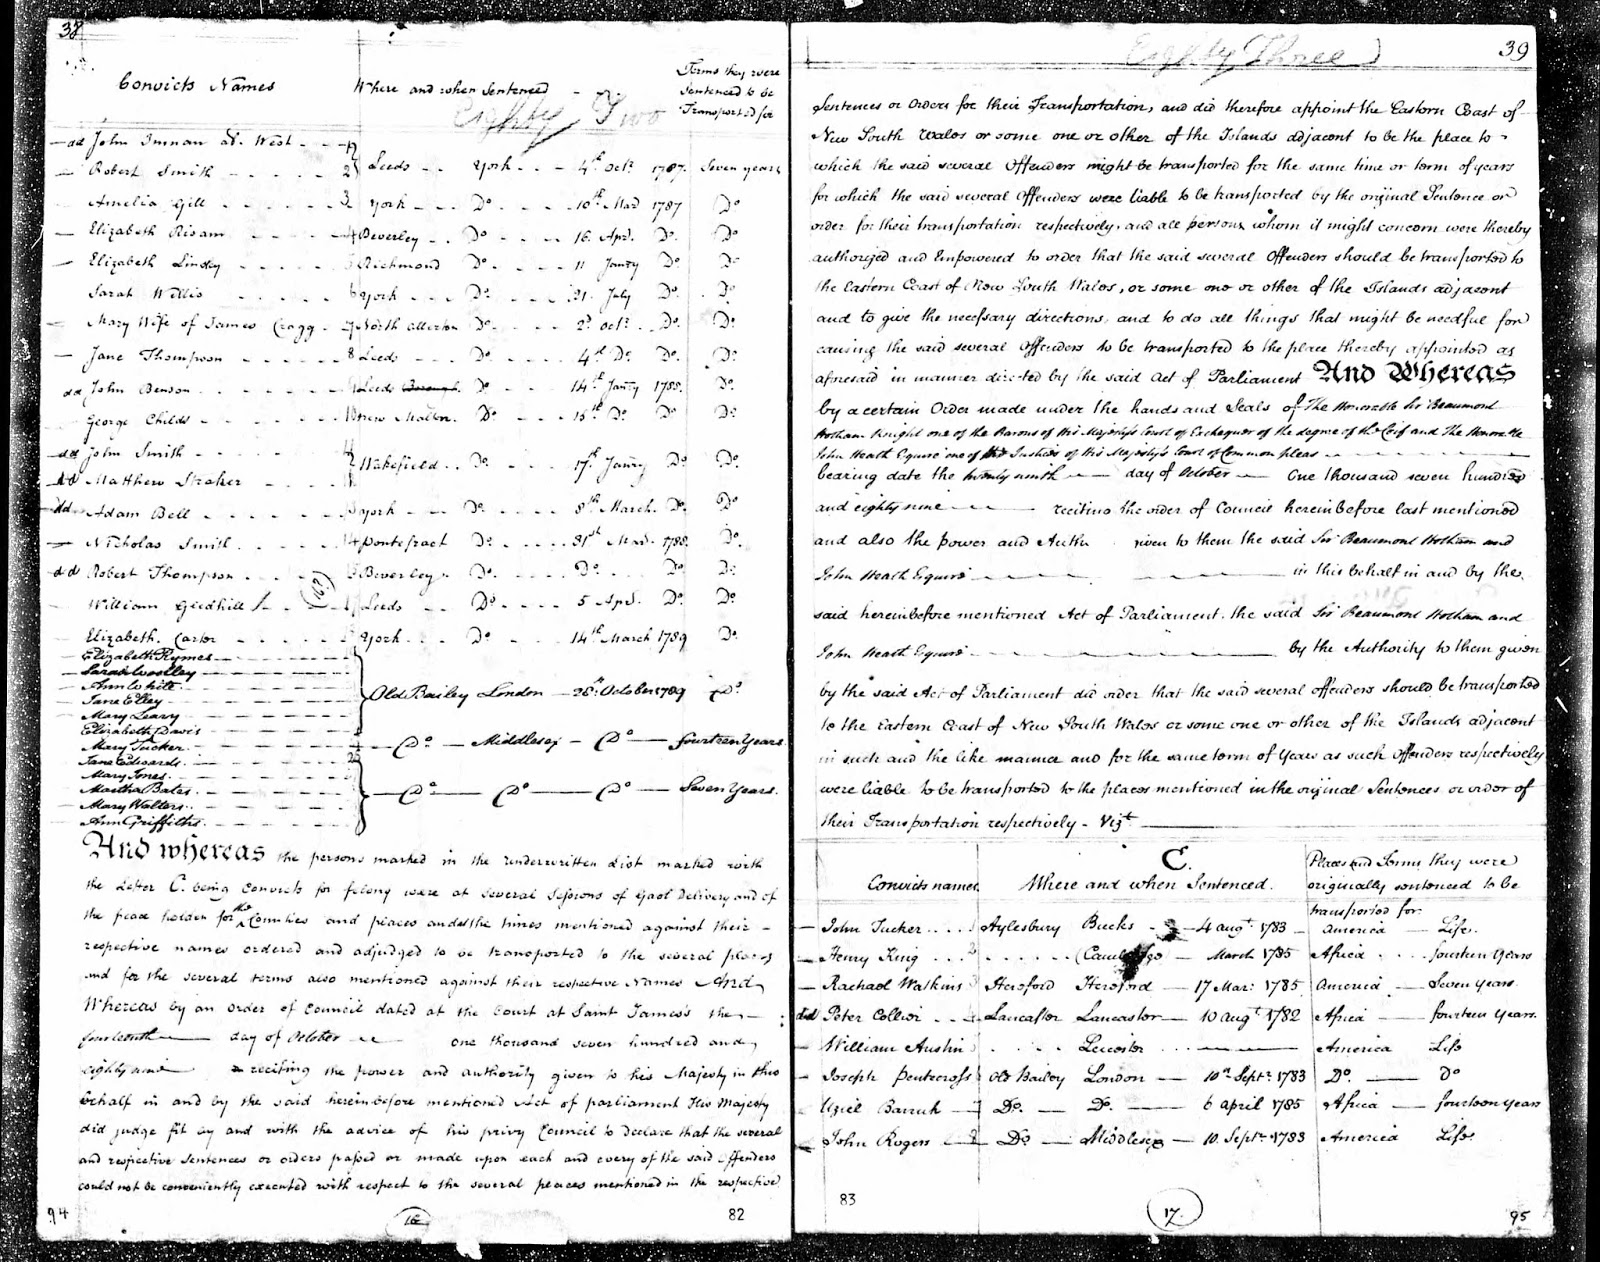 38
Convicts Names Where and when Sentenced Terms they were
Sentenced to be
Transported for
Eighty Two
dd John Inman als. West 1
Robert Smith 2 Leeds York 4th Octr. 1787. Seven years
Amelia Gill 3 York Do. 10th Mar 1787 Do
Elizabeth Risam 4 Beverley Do. 16. Apr. Do. Do
Elizabeth Linsey 5 Richmond Do. 11 Janry Do. Do
Sarah Willis 6 York Do. 21. July Do. Do
Mary Wife of James Cragg 7 North allerton Do. 2d. Octr. Do. Do.
Jane Thompson 8 Leeds Do. 4th Do. Do. Do.
dd John Benson Leeds Borough Do. 14th Janry 1788. Do.
George Childs New Malton. Do. 15th Do. Do. Do.
dd John Smith
dd Matthew Straker Wakefield Do. 17th Janry Do. Do
dd Adam Bell York Do. 8th March. Do. Do
Nicholas Smith Pontefract Do. 31st Mar. 1788. Do.
dd Robert Thompson Beverley Do. Do. Do. Do
William Gledhill Leeds Do. 5 Apr. Do. Do.
Elizabeth Carter York Do. 14th March 1789 Do.
Elizabeth Rymes
Sarah Woolley
Ann White
Jane Elley Old Bailey London 28th October 1789 Do.
Mary Leary
Elizabeth Davis
Mary Tucker Do Middlesex Do fourteen Years
Jane Edwards
Mary Jones
Martha Bates Do Do Do Seven Years.
Mary Walters
Ann Griffiths
And whereas the persons marked in the underwritten List marked with
the Letter C. being Convicts for felony were at several Sessions of Gaol Delivery and of
the peace holden for the Counties and places and at the times mentioned against their
respective names ordered and adjudged to be transported to the several places
and for the several terms also mentioned against their respective Names And
Whereas by an order of Council dated at the Court at Saint James's the
fourteenth day of October one thousand seven hundred and
eighty nine reciting the power and authority given to his Majesty in this
behalf in and by the said hereinbefore mentioned Act of parliament His Majesty
did judge fit by and with the advice of his privy Council to Declare that the several
and respective Sentences or orders passed or made upon each and every of the said Offenders
could not be conveniently executed with respect to the several places mentioned in the respective
94 16 82
Eighty Three 39
Sentences or Orders for their Transportation, and did therefore appoint the Eastern Coast of
New South Wales or some one or other of the Islands adjacent to be the place to
which the said several Offenders might be transported for the same time or term of years
for which the said several Offenders were liable to be transported by the original Sentence or
order for their transportation respectively, and all persons whom it might concern were thereby
authorized and Empowered to order that the said several Offenders should be transported to
the Eastern Coast of New South Wales, or some one or other of the Islands adjacent
and to give the necessary directions, and to do all things that might be needful for
causing the said several Offenders to be transported to the place thereby appointed as
aforesaid in manner directed by the said Act of Parliament And Whereas
by a certain Order made under the hands and Seals of The Honorable Sir Beaumont
Hotham Knight one of the Barons of His Majesty's Court of Exchequer of the degree of the Coif and The Honorable
John Heath Esquire one of the Justices of His Majesty's Court of Common pleas
bearing date the twenty ninth day of October One thousand seven hundred
and eighty nine reciting the order of Council hereinbefore last mentioned
and also the power and Auth given to them the said Sir Beaumont Hotham and
John Heath Esquire in this behalf in and by the
said hereinbefore mentioned Act of Parliament, the said Sir Beaumont Hotham and
John Heath Esquire by the Authority to them given
by the said Act of Parliament did order that the said several offenders should be transported
to the Eastern Coast of New South Wales or some one or other of the Islands adjacent
in such and the like manner and for the same term of Years as such Offenders respectively
were liable to be transported to the places mentioned in the original Sentences or order of
their Transportation respectively - Vizt.
C.
Convicts names. Where and when Sentenced. Places and Terms they were
originally sentenced to be
transported for.
John Tucker Aylesbury Bucks 4 augt. 1783 America Life.
Henry King 2 March 1785 Africa fourteen Years
Rachael Watkins Hereford Hereford 17 Mar: 1785. America Seven Years.
dd Peter Collier Lancaster Lancaster 10 augt. 1782 Africa fourteen Years.
William Austin Leicester America Life
Joseph Pentecross Old Bailey London 10th Septr. 1783 Do. Do
Uziel Barruh Do. Do. 6 April 1785 Africa fourteen Years
John Rogers 8 Do Middlesex 10. Septr. 1783 America Life.
83 17. 95